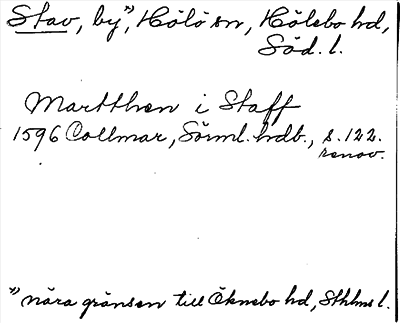 Stav, by”, Hölö sn, Hölebo hd,
Söd. l.
Martthen i Staff
1596 Collmar, Sörml. hdb., s. 122.
renov.
” nära gränsen till Öknebo hd, Sthlms l.